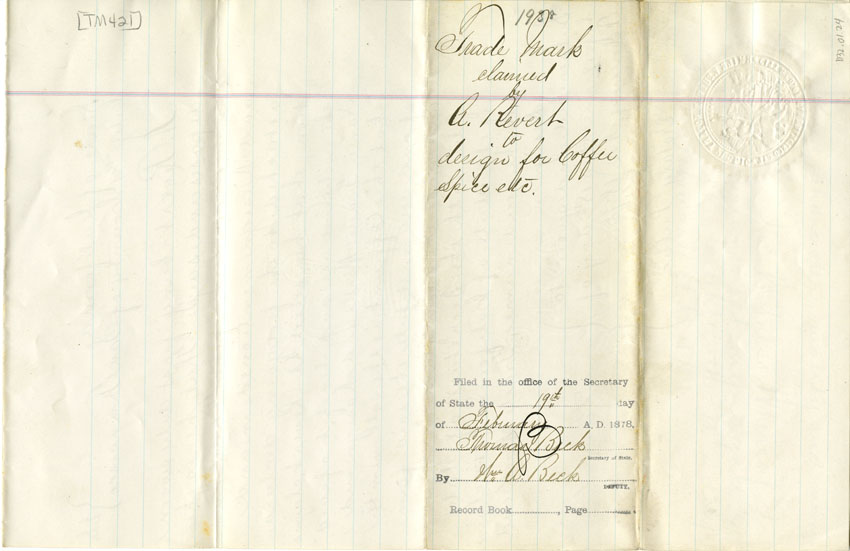 [TM421]
Trade Mark
claimed
by
A. Revert
to
design for Coffee
Spice etc.
Filed in the office of the Secretary
of State the 19th day
of February A. D. 1878.
Thomas Beck
Secretary of State.
By Wm A. Beck
DEPUTY.
Record Book , Page